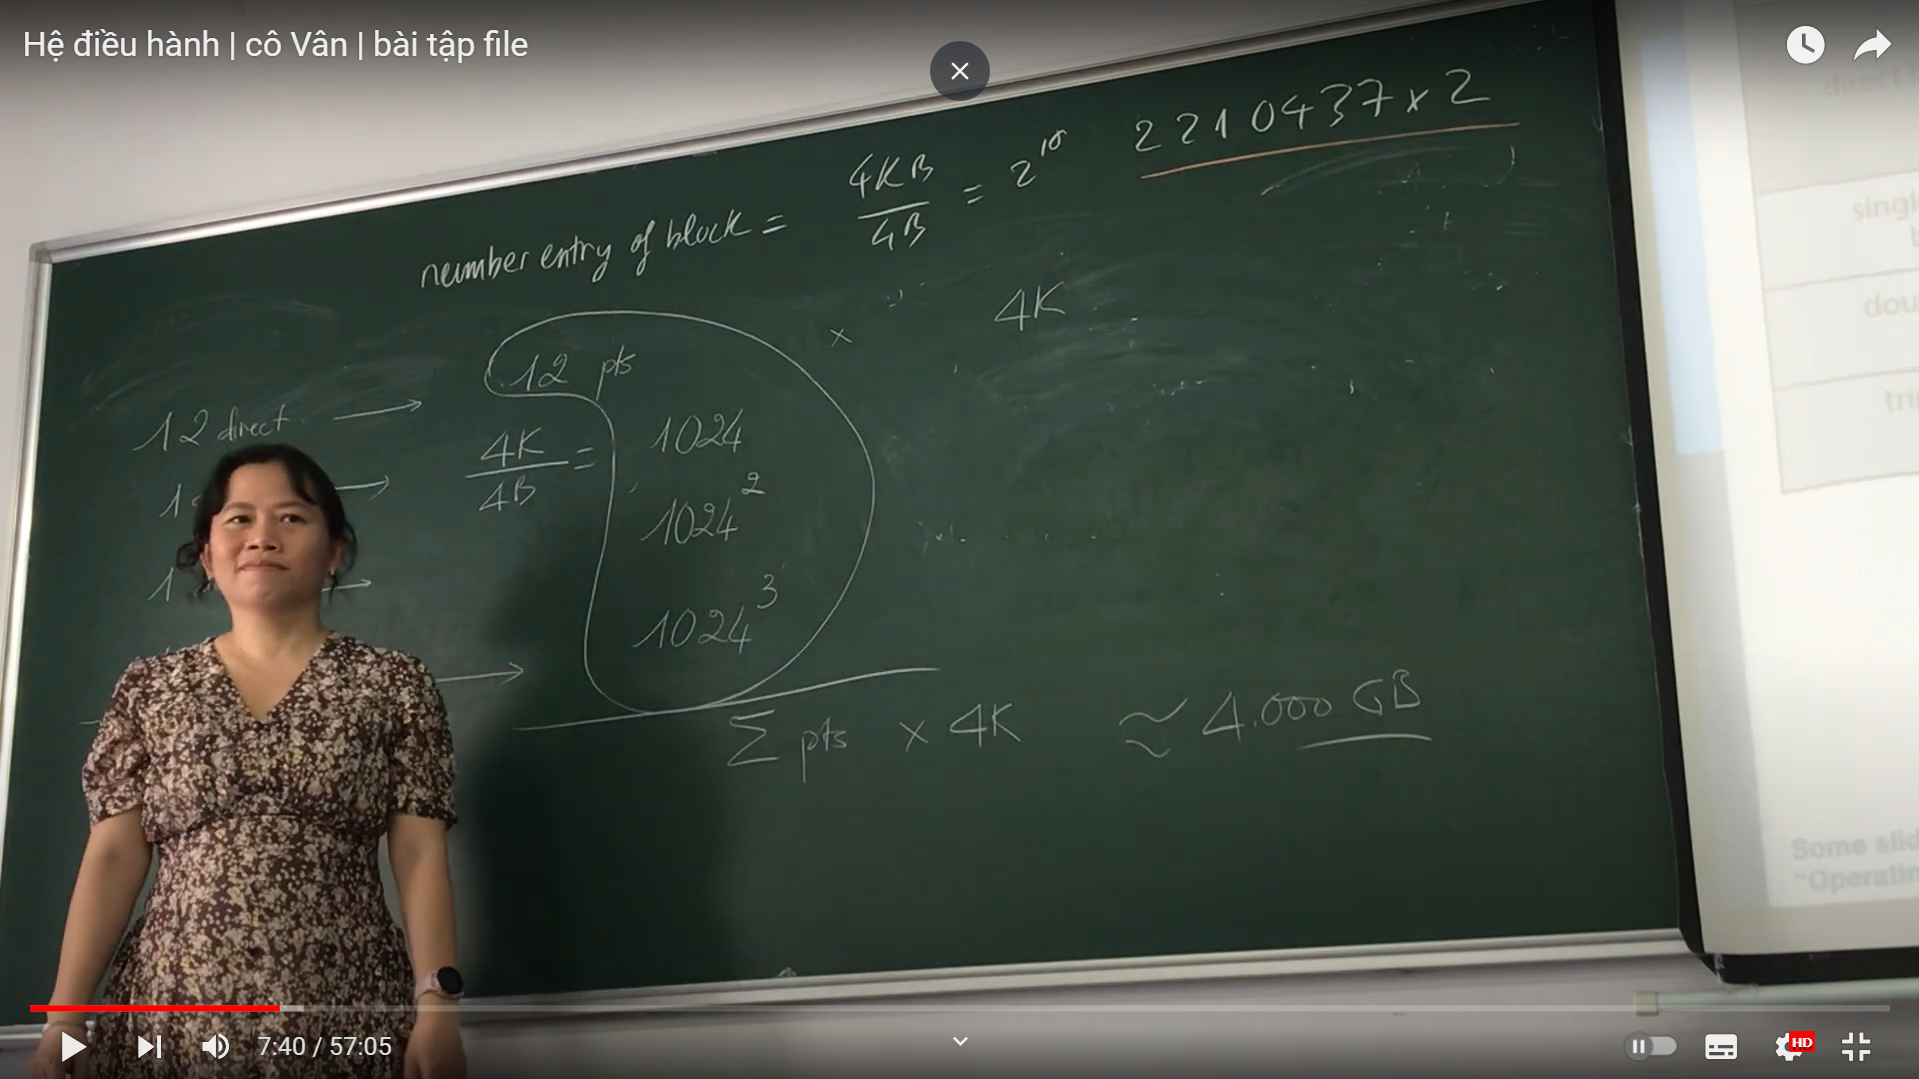 Hệ điều hành | cô Vân | bài tập file
2210437 x 2
number entry of block = 4KB / 4B = 2^10
12 pts x 4K
12 direct →
4K / 4B = 1024
1024^2
1024^3
Σ pts x 4K ≈ 4.000 GB
direct
singl
dou
tri
Some slid
"Operatin
7:40 / 57:05
HD